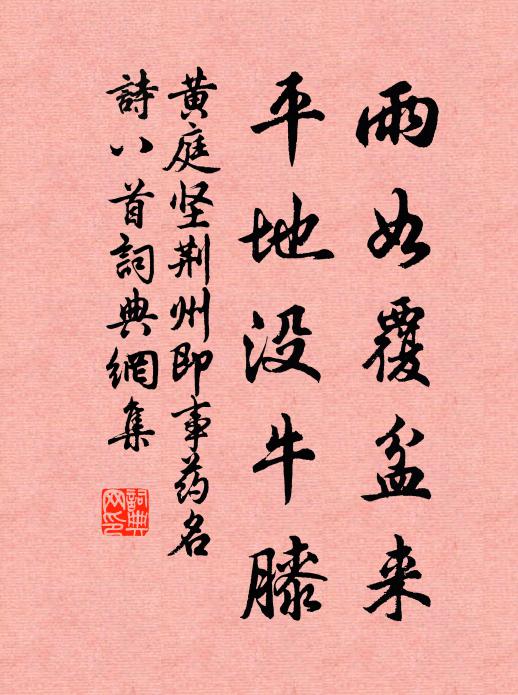 雨如覆盆来
平地没牛膝
黄庭坚荆州即事药名
詩八首詞典網集
詞典網印